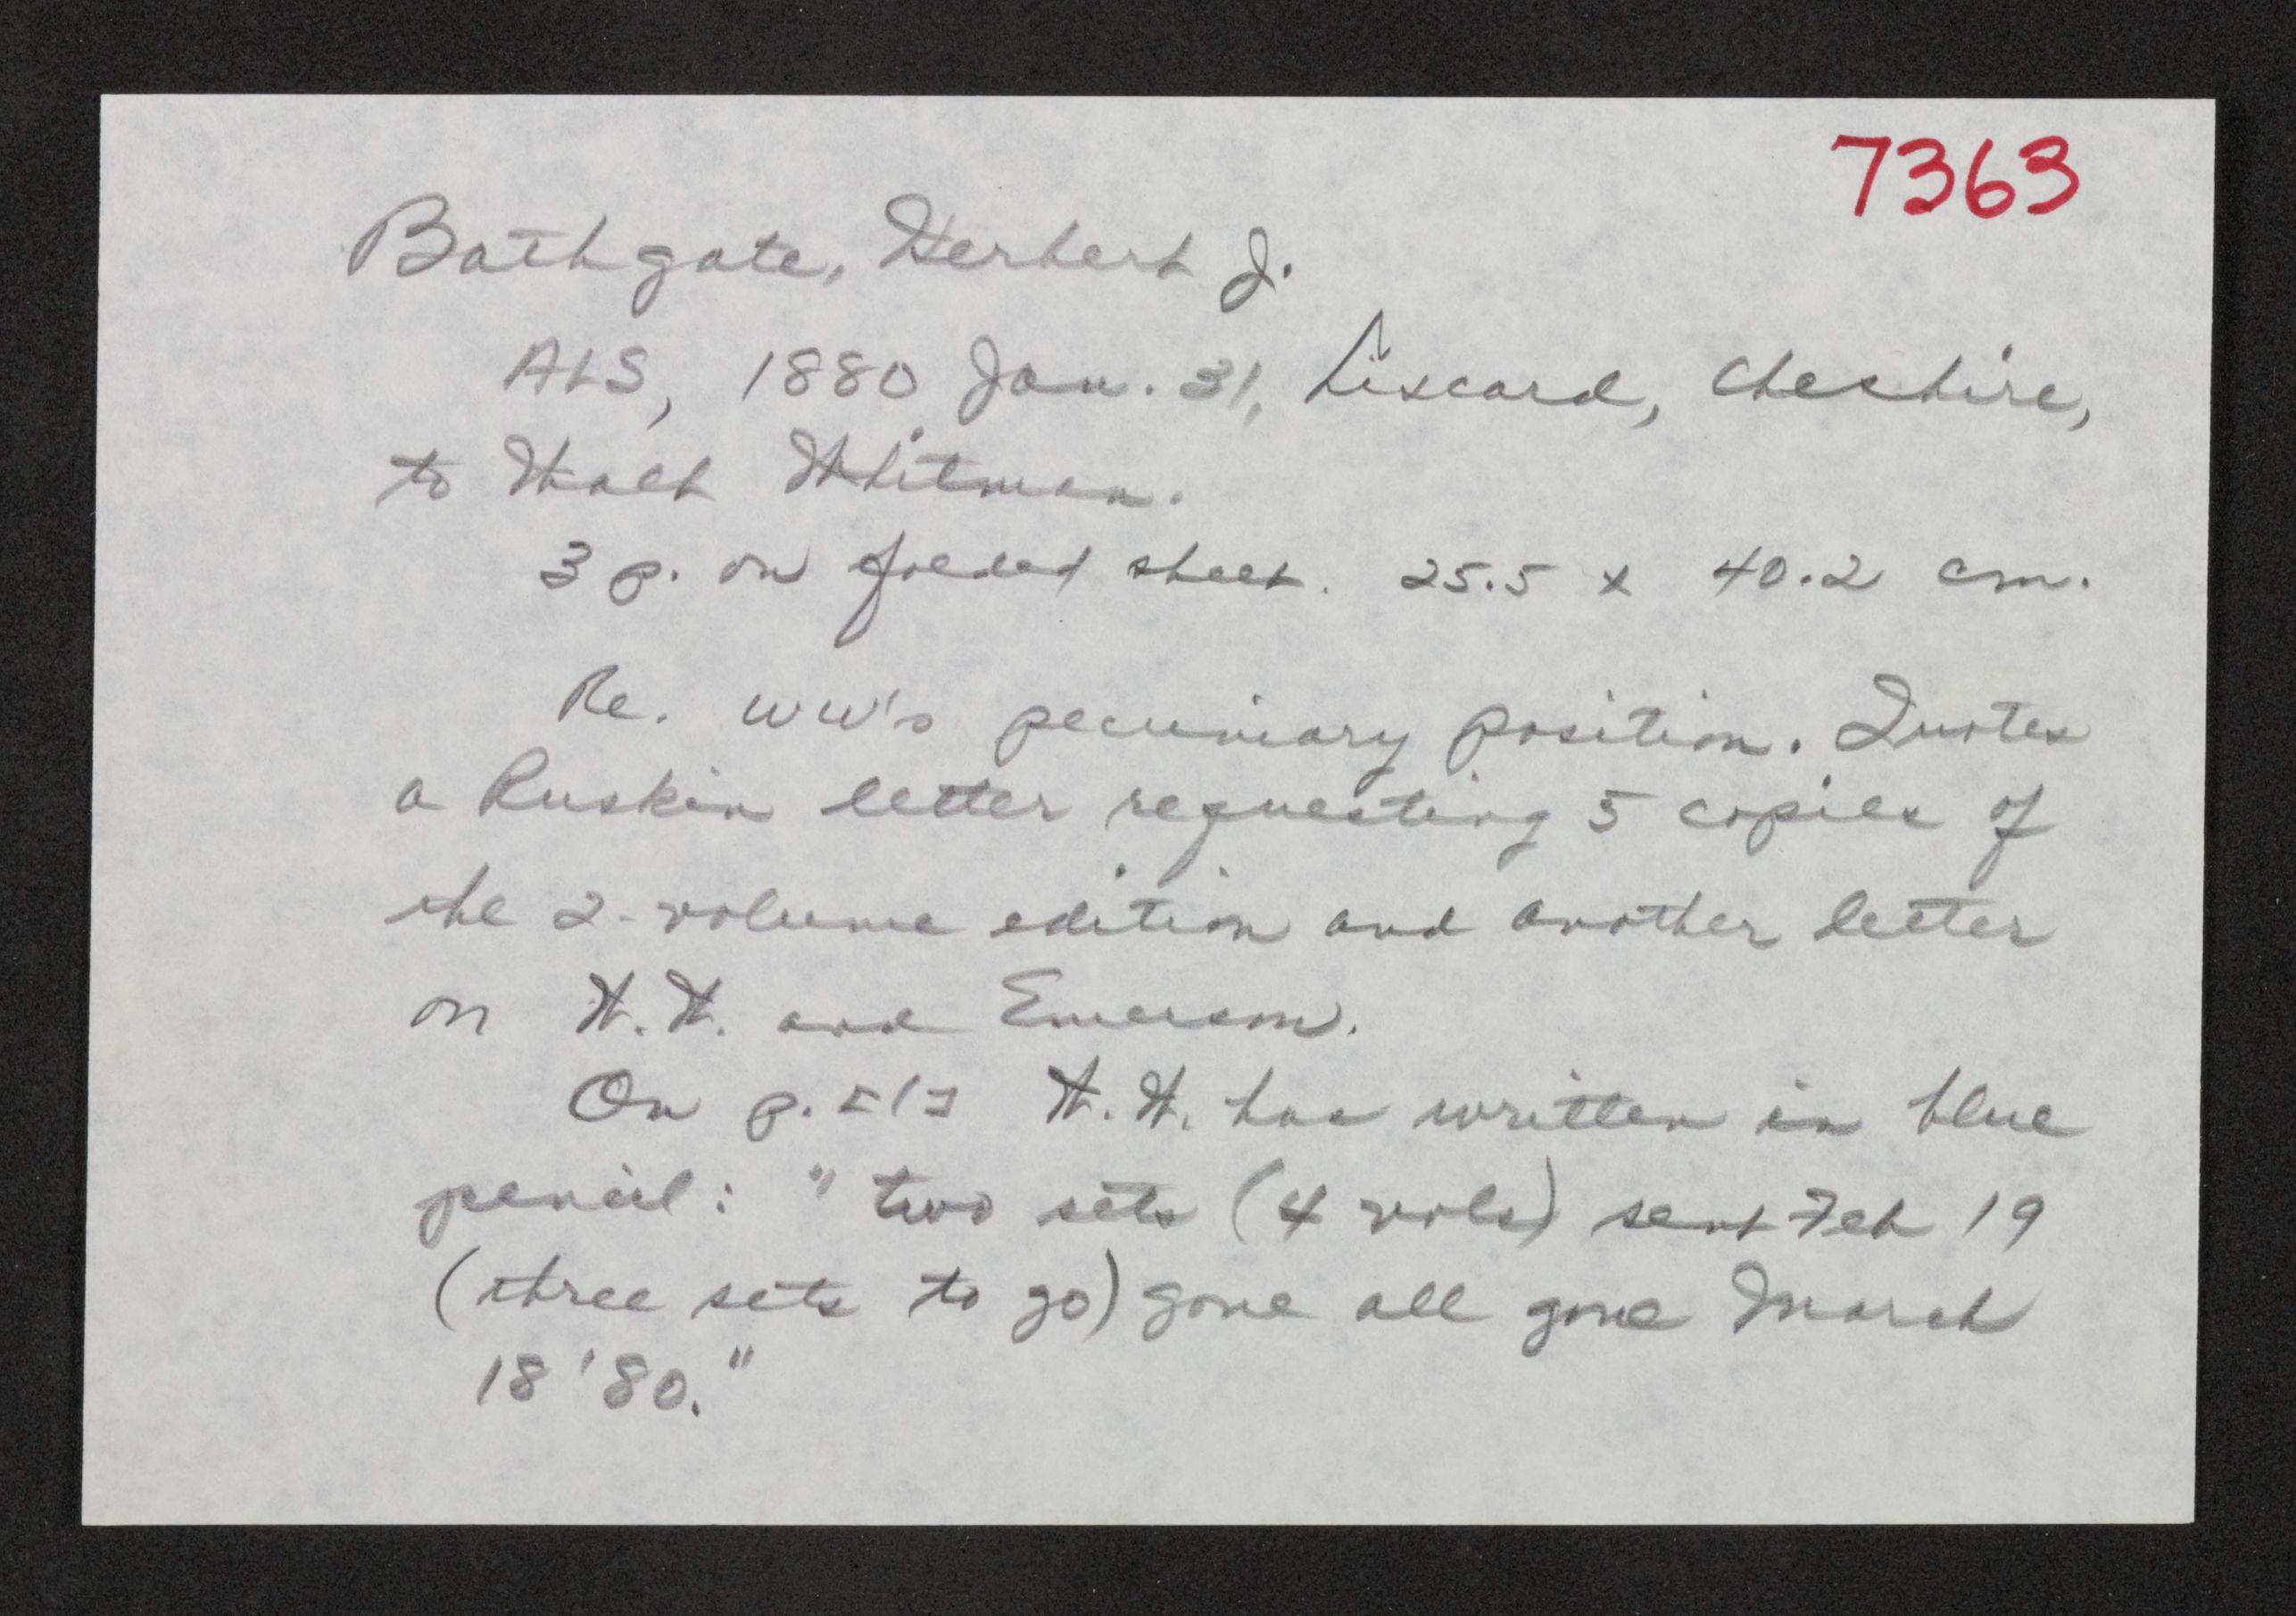 7363
Bathgate, Herbert J.
ALS, 1880 Jan. 31, Liscard, Cheshire,
to Walt Whitman.
3 p. on folded sheet. 25.5 x 40.2 cm.
Re. WW's pecuniary position. Quotes
a Ruskin letter requesting 5 copies of
the 2-volume edition and another letter
on W.W. and Emerson.
On p. [1] W.W. has written in blue
pencil: "two sets (4 vols) sent Feb 19
(three sets to go) gone all gone March
18 '80."